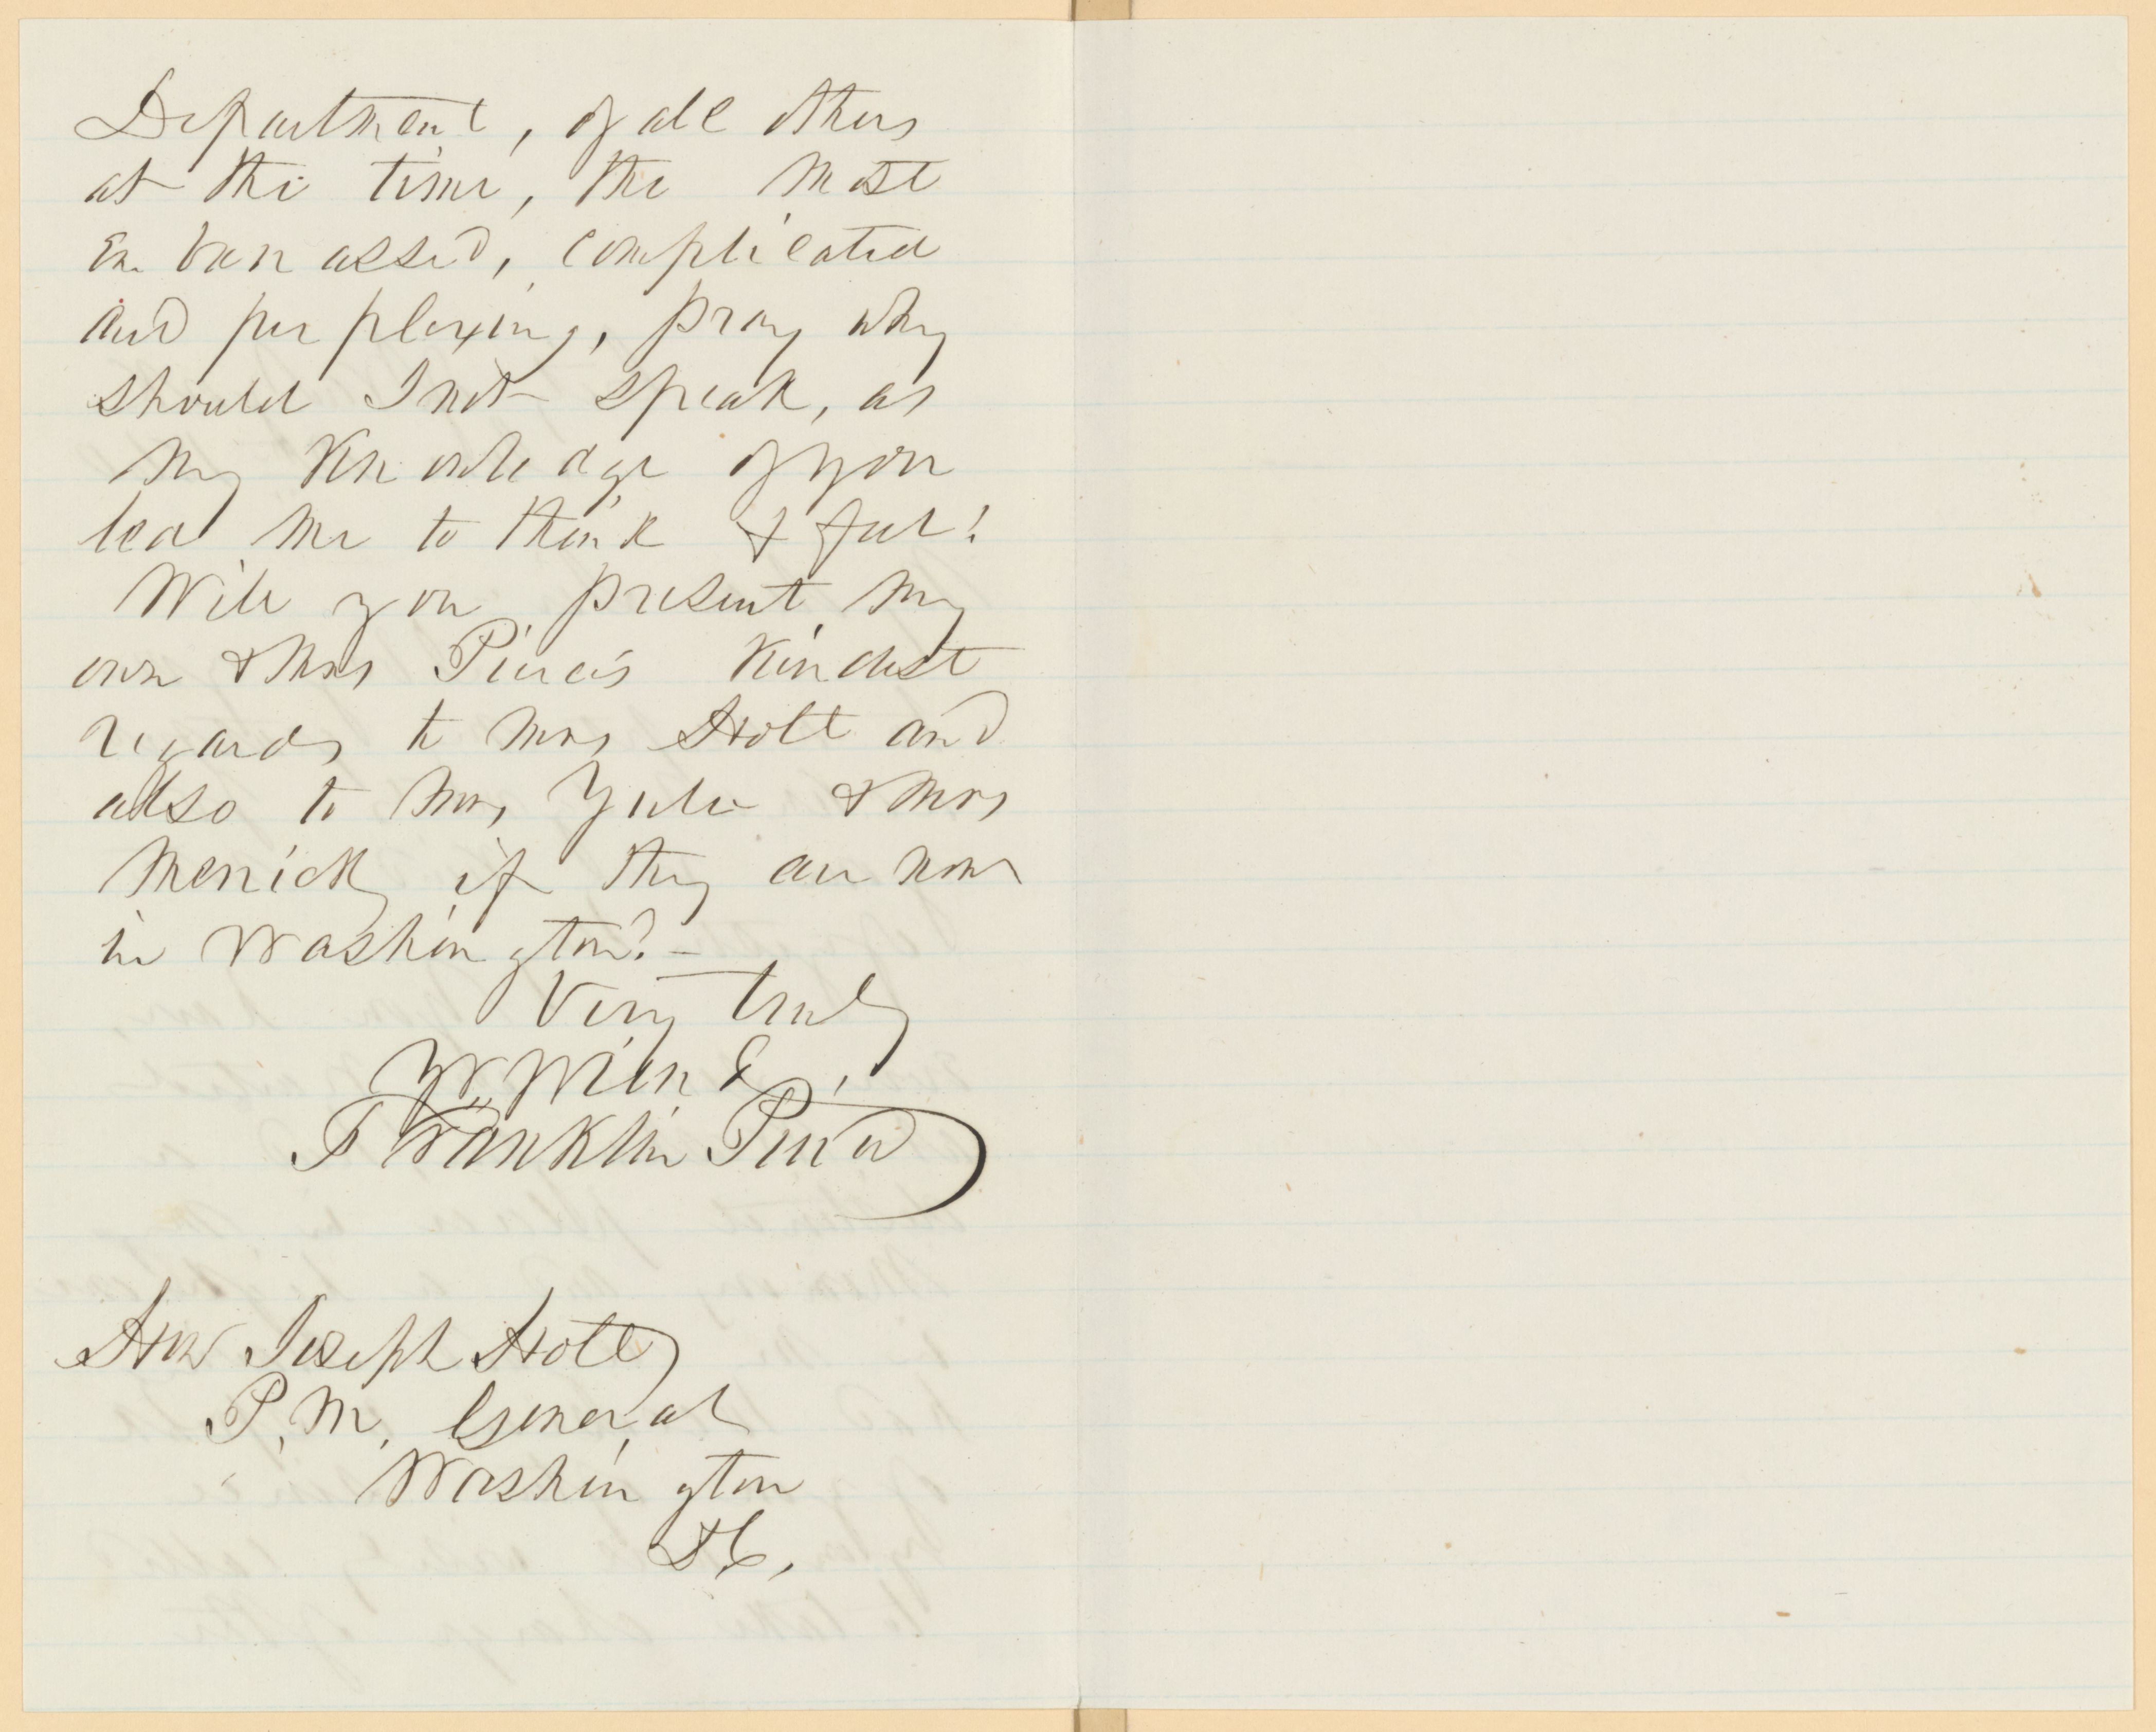 Department, of all others
at the time, the most
embarrassed, complicated
and perplexing, pray why
should I not speak, as
my knowledge of you
lead me to think & feel!
Will you present my
own & Mrs Pierce's kindest
regards to Mrs Holt and
also to Mrs Yulee & Mrs
Merrick, if they are now
in Washington? -
Very truly
Yr. friend,
Franklin Pierce
Hon Joseph Holt
P. M. General
Washington
D C,